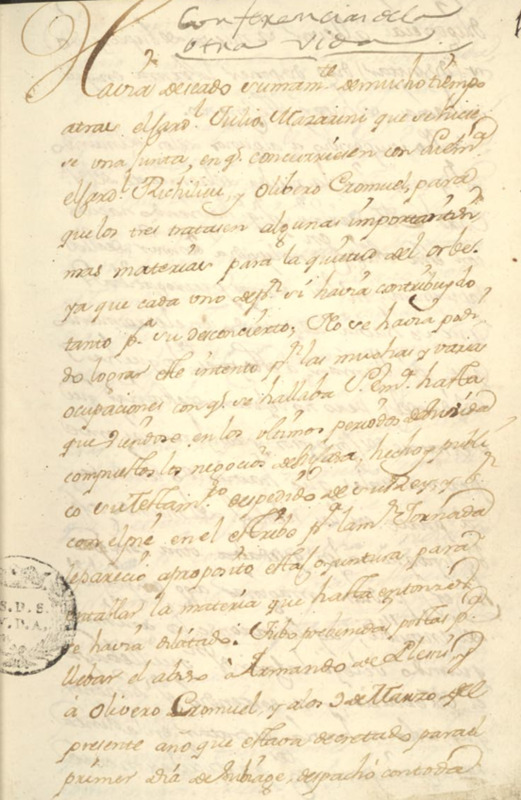 Conferencias de la
otra vida
Havia deseado sumam.te de mucho tiempo
atras el Card.l Julio Mazarini que se hicie
se una junta, en q.e concurriesen con su Em.a
el Card.l Richilieu, y Olibero Cromuel, para
que los tres tratasen algunas importantissi
mas materias para la quietud del orbe,
ya que cada uno de p.r si havia contribuydo
tanto p.a su desconcierto; No se havia podi
do lograr este intento p.r las muchas y varias
ocupaciones con q.e se hallaba S. Em.a hasta
que viendose en los ultimos periodos de su vida
compuestos los negocios de su casa, hecho y publi
co su testam.to despedido de su Rey, y
con el pie en el estribo p.a la Jornada
le parecio aproposito esta Coyuntura, para
entablar la materia que hasta entonces
se havia dilatado. Tubo prevenidas postas p.a
llebar el abiso à Armando de Plessis y
à Olivero Cromuel, y a los 9 de Marzo del
presente año que estava decretado para el
primer dia de su biage, despachò con toda
S.D.S.
Y.D.A.